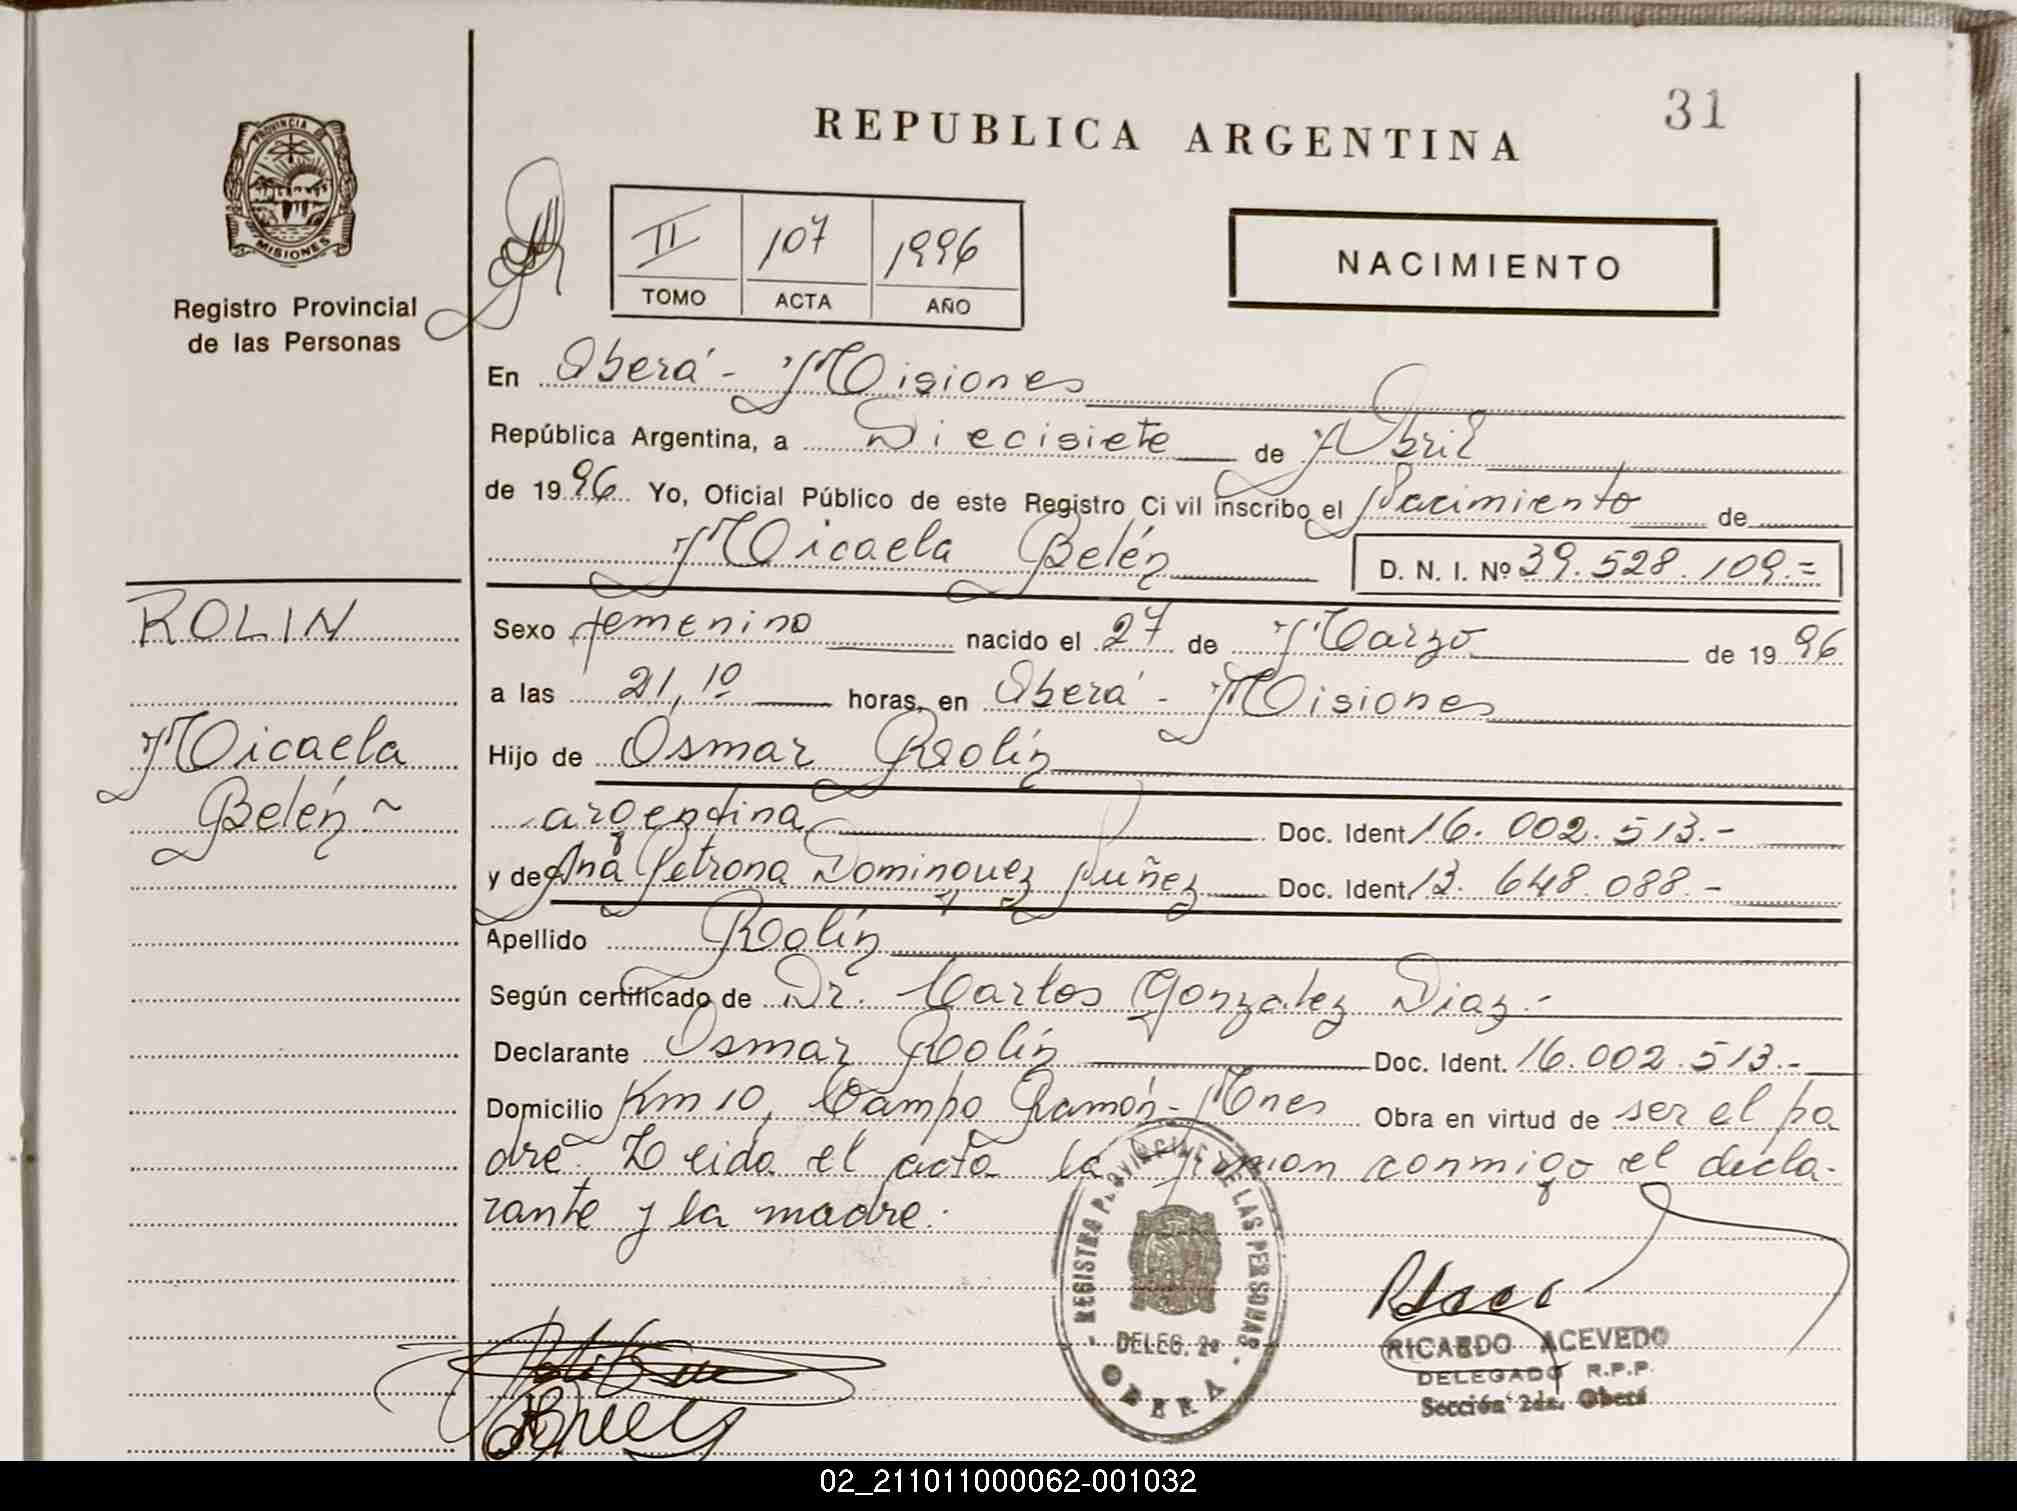 31
REPUBLICA ARGENTINA
PROVINCIA DE
MISIONES
Registro Provincial
de las Personas
II 107 1996
TOMO ACTA AÑO
NACIMIENTO
En Oberá - Misiones
República Argentina, a Diecisiete de Abril
de 1996 Yo, Oficial Público de este Registro Civil inscribo el Nacimiento de
Micaela Belén D. N. I. Nº 39.528.109.=
ROLIN
Micaela
Belén ~
Sexo femenino nacido el 27 de Marzo de 1996
a las 21,10 horas, en Oberá - Misiones
Hijo de Osmar Rolín
argentina Doc. Ident. 16.002.513.-
y de Ana Petrona Dominguez Nuñez Doc. Ident. 13.648.088.-
Apellido Rolín
Según certificado de Dr. Carlos Gonzalez Diaz.-
Declarante Osmar Rolín Doc. Ident. 16.002.513.-
Domicilio Km 10, Campo Ramón - Mnes Obra en virtud de ser el pa
dre. Leida el acta la firman conmigo el decla-
rante y la madre.
REGISTRO PROVINCIAL DE LAS PERSONAS
DELEG. 2a
OBERA
RICARDO ACEVEDO
DELEGADO R.P.P.
Sección 2da. Oberá
02_211011000062-001032